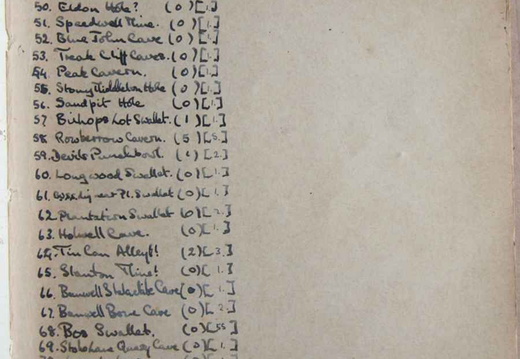 50. Eldon Hole? (0)[1.]
51. Speedwell Mine. (0)[1.]
52. Blue John Cave (0)[1.]
53. Treak Cliff Caves. (0)[1.]
54. Peak Cavern. (0)[1.]
55. Stony Middleton Hole (0)[1.]
56. Sandpit Hole (0)[1.]
57. Bishops Lot Swallet. (1)[1.]
58. Rowberrow Cavern. (5)[5.]
59. Devils Punchbowl. (1)[2.]
60. Longwood Swallet. (0)[1.]
61. new Pl. Swallet (0)[1.]
62. Plantation Swallet (0)[2.]
63. Holwell Cave. (0)[1.]
64. Tin Can Alley!! (2)[3.]
65. Stanton Mine! (0)[1.]
66. Banwell Stalactite Cave (0)[1.]
67. Banwell Bone Cave (0)[2.]
68. Bos Swallet. (0)[55]
69. Stoke Lane Quarry Cave (0)[1.]